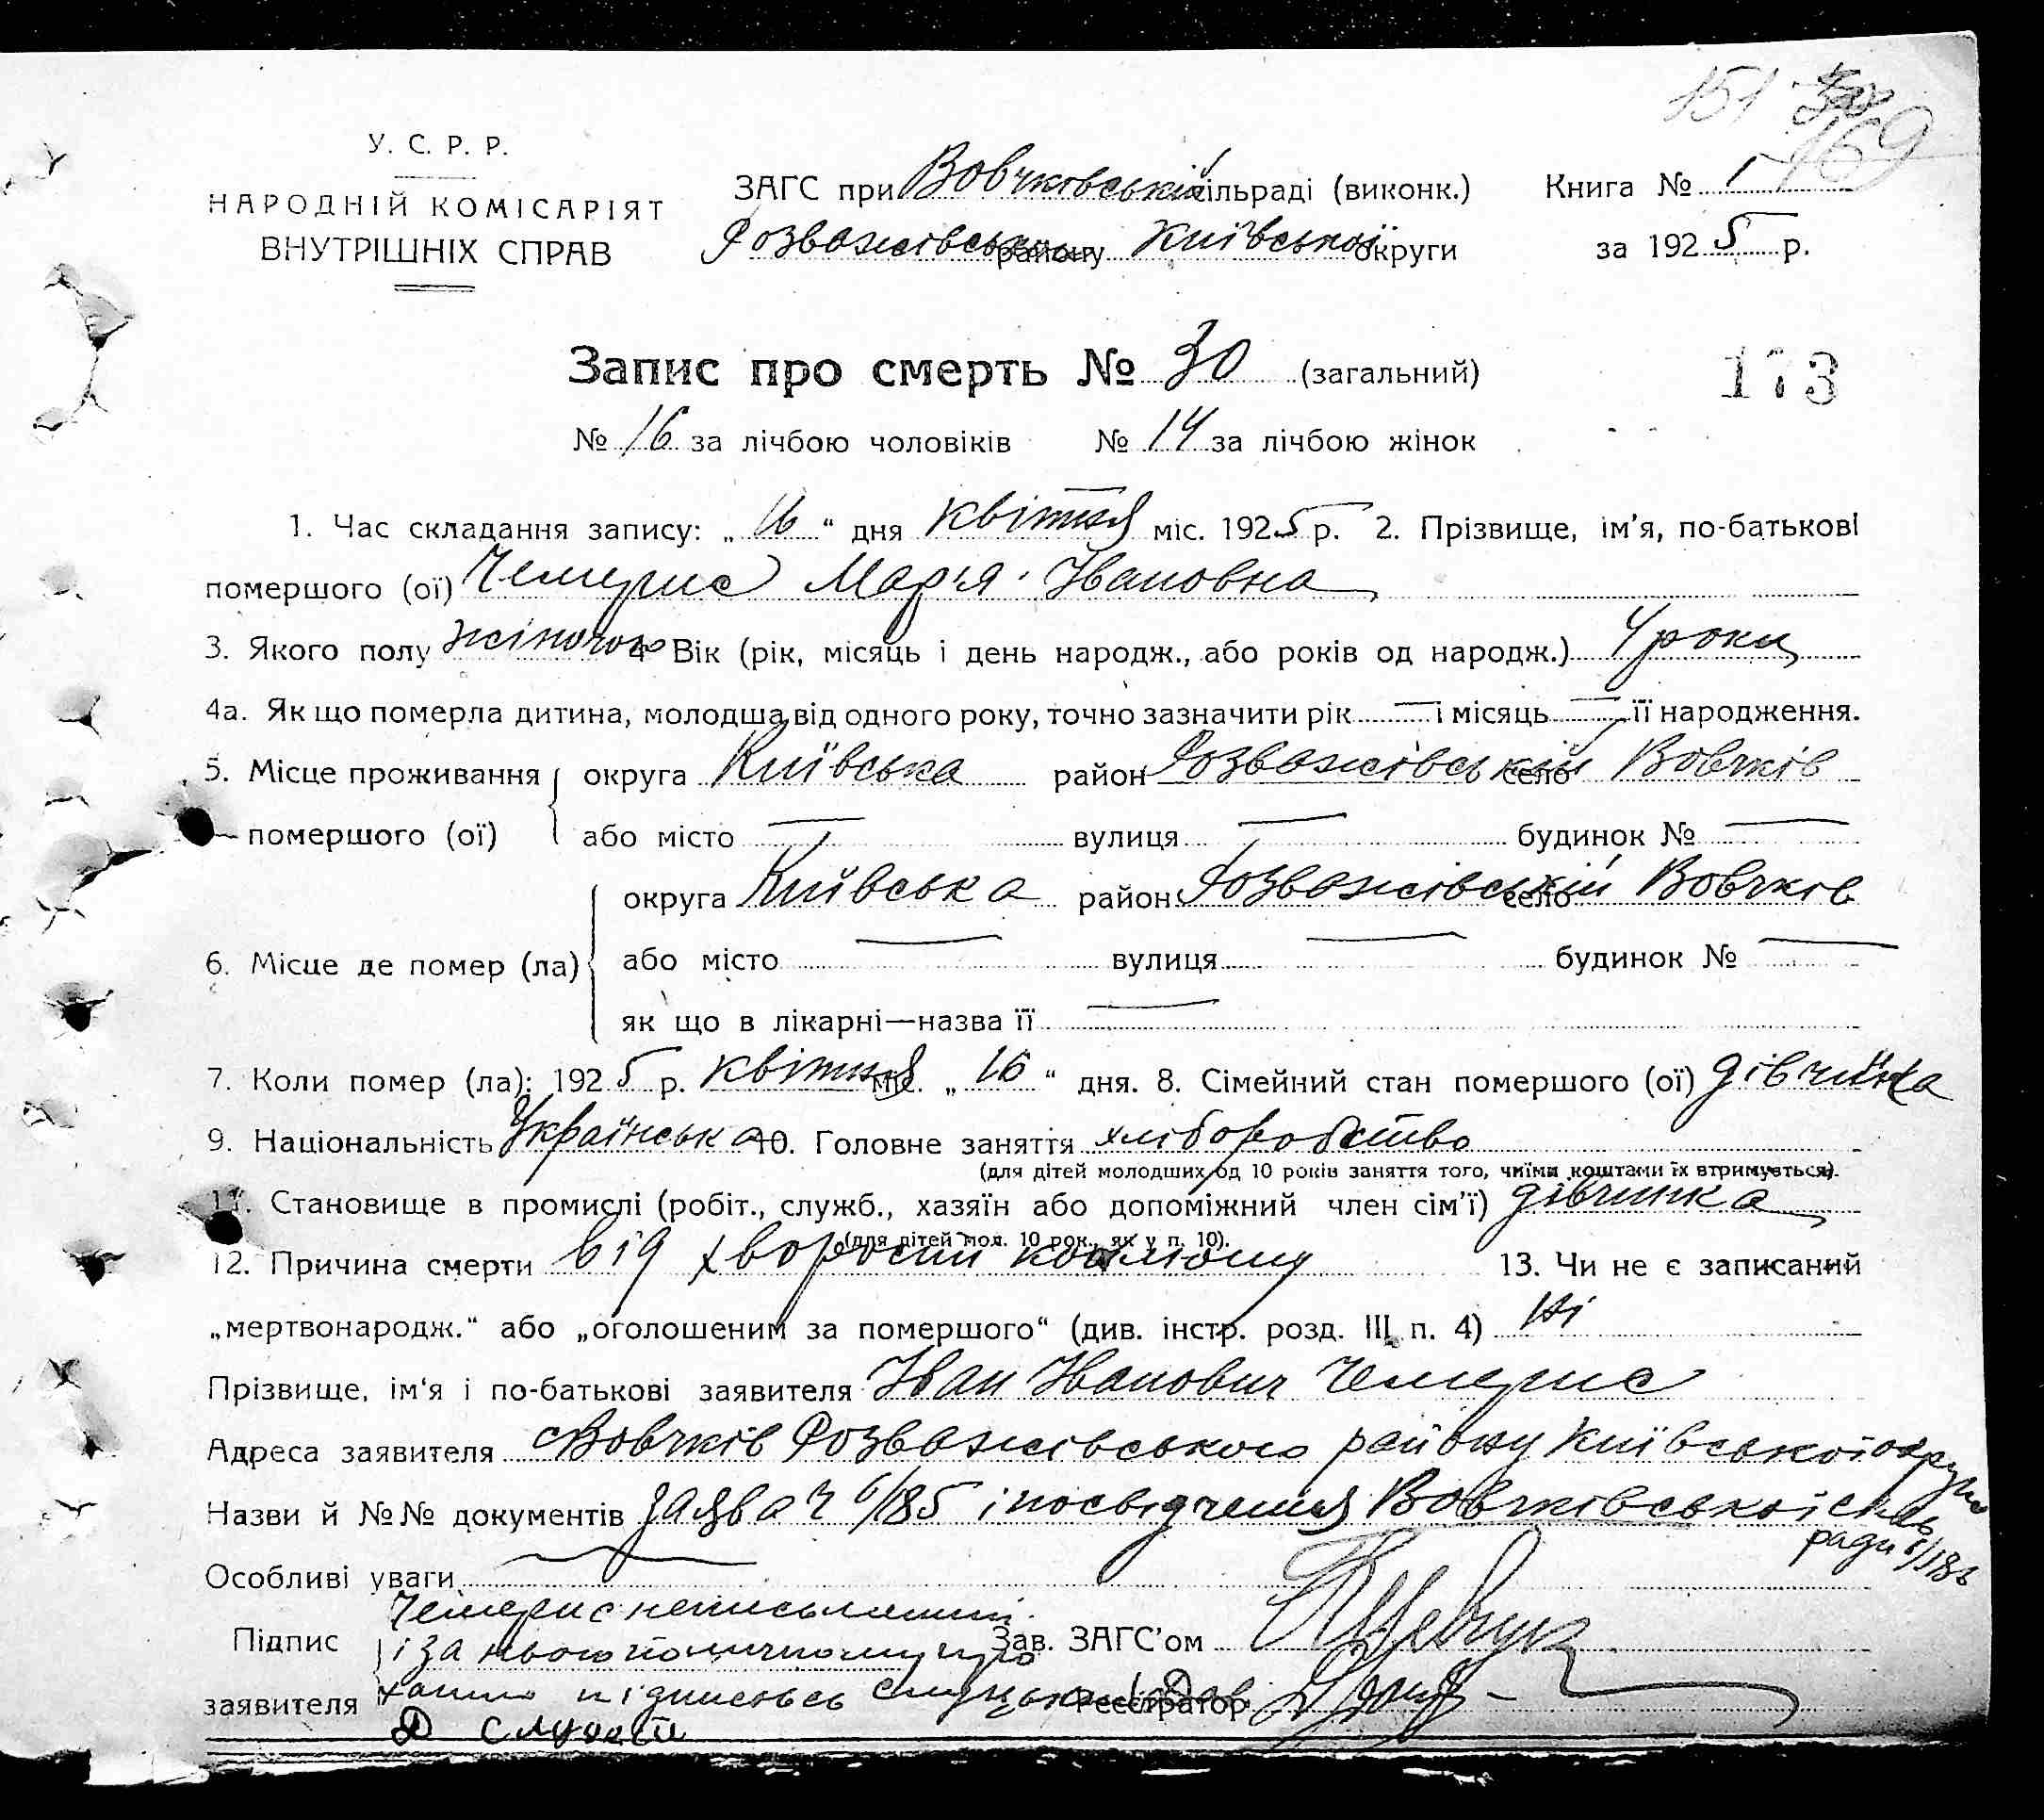 151 169
У. С. Р. Р.
НАРОДНІЙ КОМІСАРІЯТ
ВНУТРІШНІХ СПРАВ
ЗАГС при Вовчківській сільраді (виконк.) Книга № 1
Розважівського району Київської округи за 1925 р.
Запис про смерть № 30 (загальний)
173
№ 16 за лічбою чоловіків № 14 за лічбою жінок
1. Час складання запису: „16“ дня квітня міс. 1925 р. 2. Прізвище, ім’я, по-батькові
помершого (ої) Чемерис Мар'я Івановна
3. Якого полу жіночого 4 Вік (рік, місяць і день народж., або років од народж.) 4 роки
4а. Як що померла дитина, молодша від одного року, точно зазначити рік — і місяць — її народження.
5. Місце проживання округа Київська район Розважівський село Вовчків
помершого (ої) або місто — вулиця — будинок № —
округа Київська район Розважівський село Вовчків
6. Місце де помер (ла) або місто — вулиця — будинок № —
як що в лікарні—назва її —
7. Коли помер (ла): 1925 р. квітня міс. „16“ дня. 8. Сімейний стан помершого (ої) дівчинка
9. Національність Українська 10. Головне заняття хліборобство
(для дітей молодших од 10 років заняття того, чиїми коштами їх втримується).
11. Становище в промислі (робіт., служб., хазяїн або допоміжний член сім’ї) дівчинка
(для дітей мол. 10 рок., як у п. 10).
12. Причина смерти від хворости кошлюшу 13. Чи не є записаний
„мертвонародж.“ або „оголошеним за помершого“ (див. інстр. розд. III п. 4) Ні
Прізвище, ім‘я і по-батькові заявителя Іван Іванович Чемерис
Адреса заявителя с Вовчків Розважівського району Київської округи
Назви й №№ документів заява Ч 6/185 і посвідчення Вовчківської сіль
ради 6/186
Особливі уваги
Чемерис неписьменний
Підпис і за нього Зав. ЗАГС’ом Шевчук
заявителя підписавсь Реєстратор